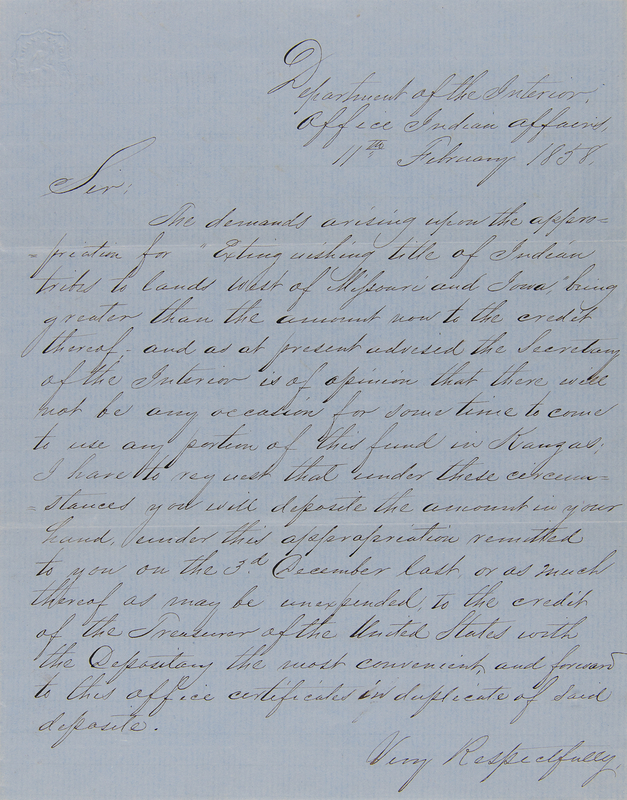 Department of the Interior,
Office Indian affairs,
11th February 1858.
Sir:
The demands arising upon the appro=
=priation for "Extinguishing title of Indian
tribes to lands west of Missouri and Iowa," being
greater than the amount now to the credit
thereof,- and as at present advised the Secretary
of the Interior is of opinion that there will
not be any occasion for some time to come
to use any portion of this fund in Kansas;
I have to request that under these circum=
=stances you will deposite the amount in your
hand, under this appropriation remitted
to you on the 3d December last, or as much
thereof as may be unexpended, to the credit
of the Treasurer of the United States with
the Depositary the most convenient, and forward
to this office certificates in duplicate of said
deposite.
Very Respectfully,